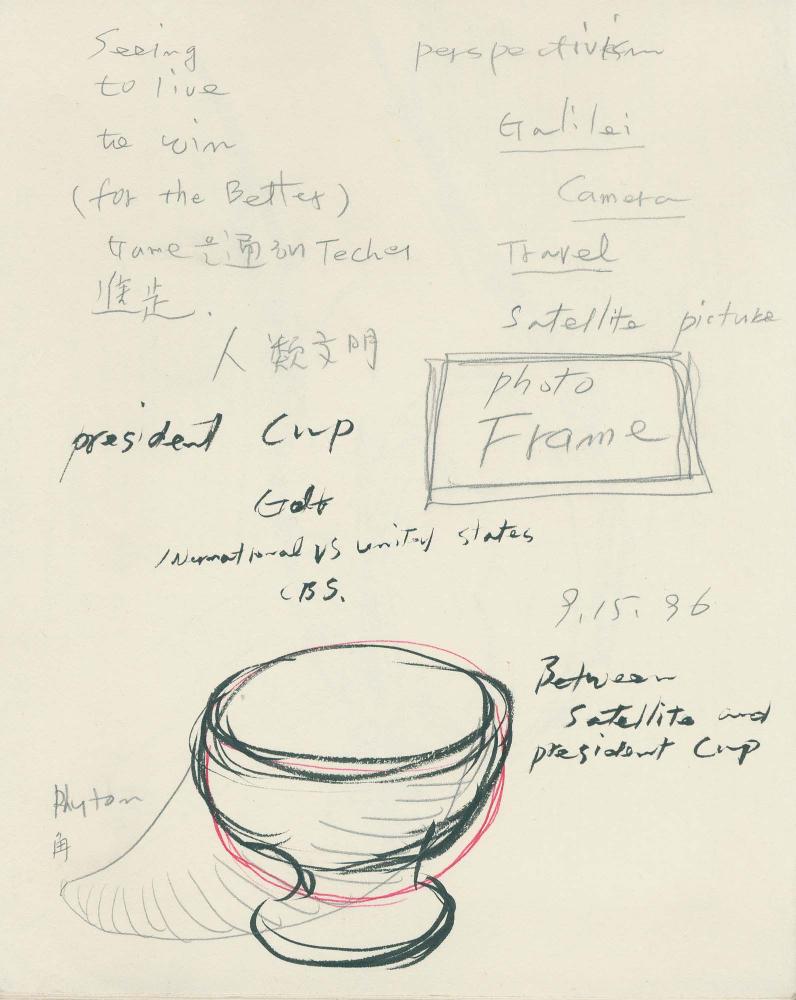 Seeing
to live
to win
(for the Better)
Game은 通한 Techer
進步.
人類文明
perspectivism
Galilei
Camera
Travel
Satellite picture
photo
Frame
president Cup
Golf
International VS united states
CBS.
9.15.96
Between
Satellite and
president Cup
Rhyton
角